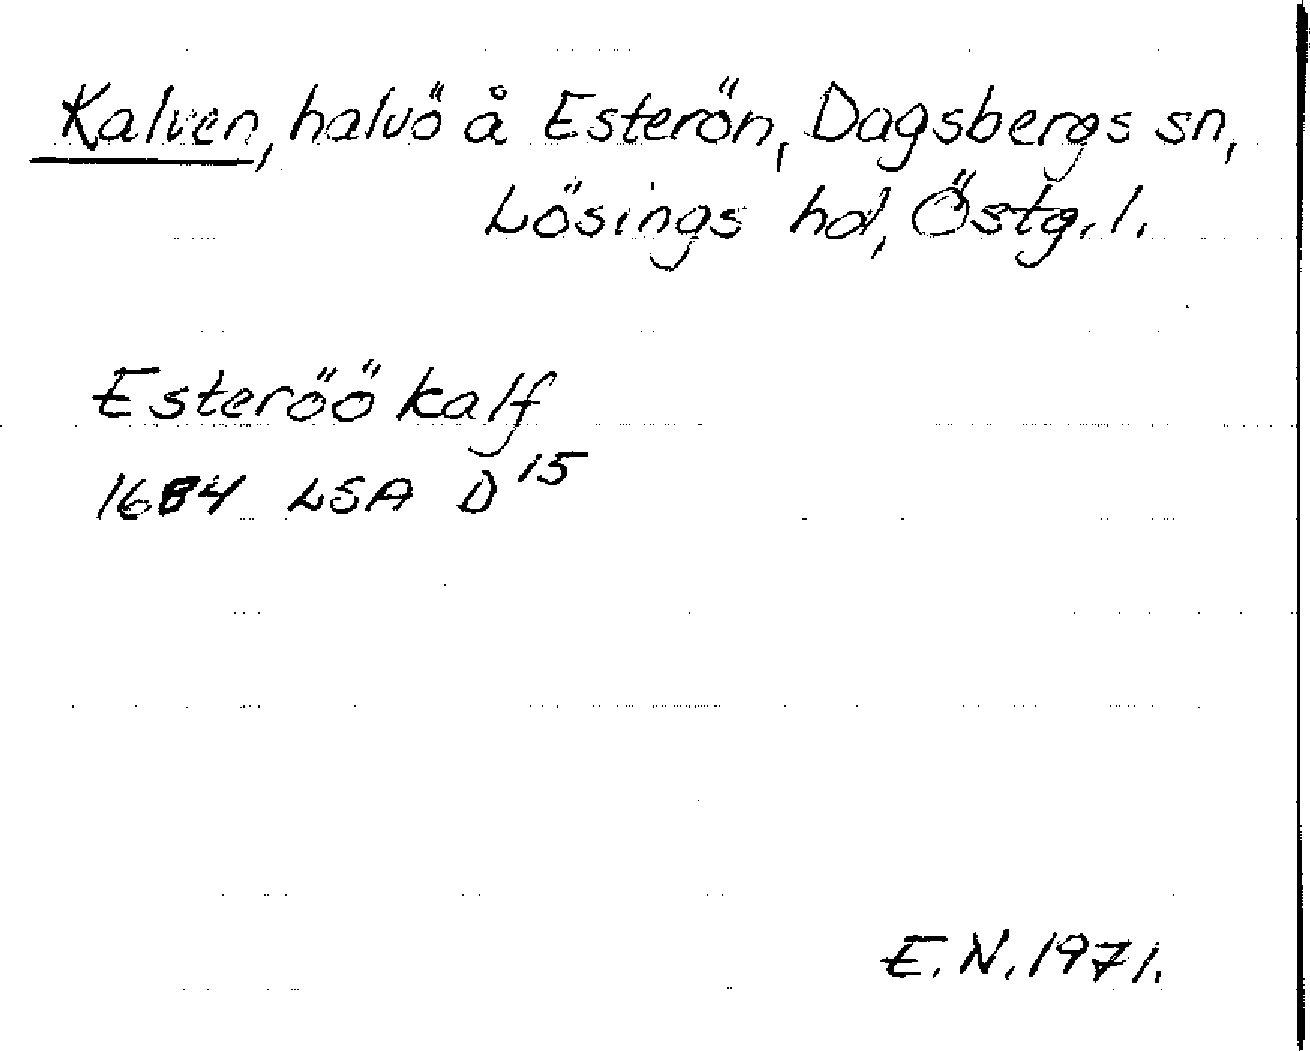 Kalven, halvö å Esterön, Dagsbergs sn,
Lösings hd, Östg. l.
Esteröö kalf
1684 LSA D 15
E. N. 1971.